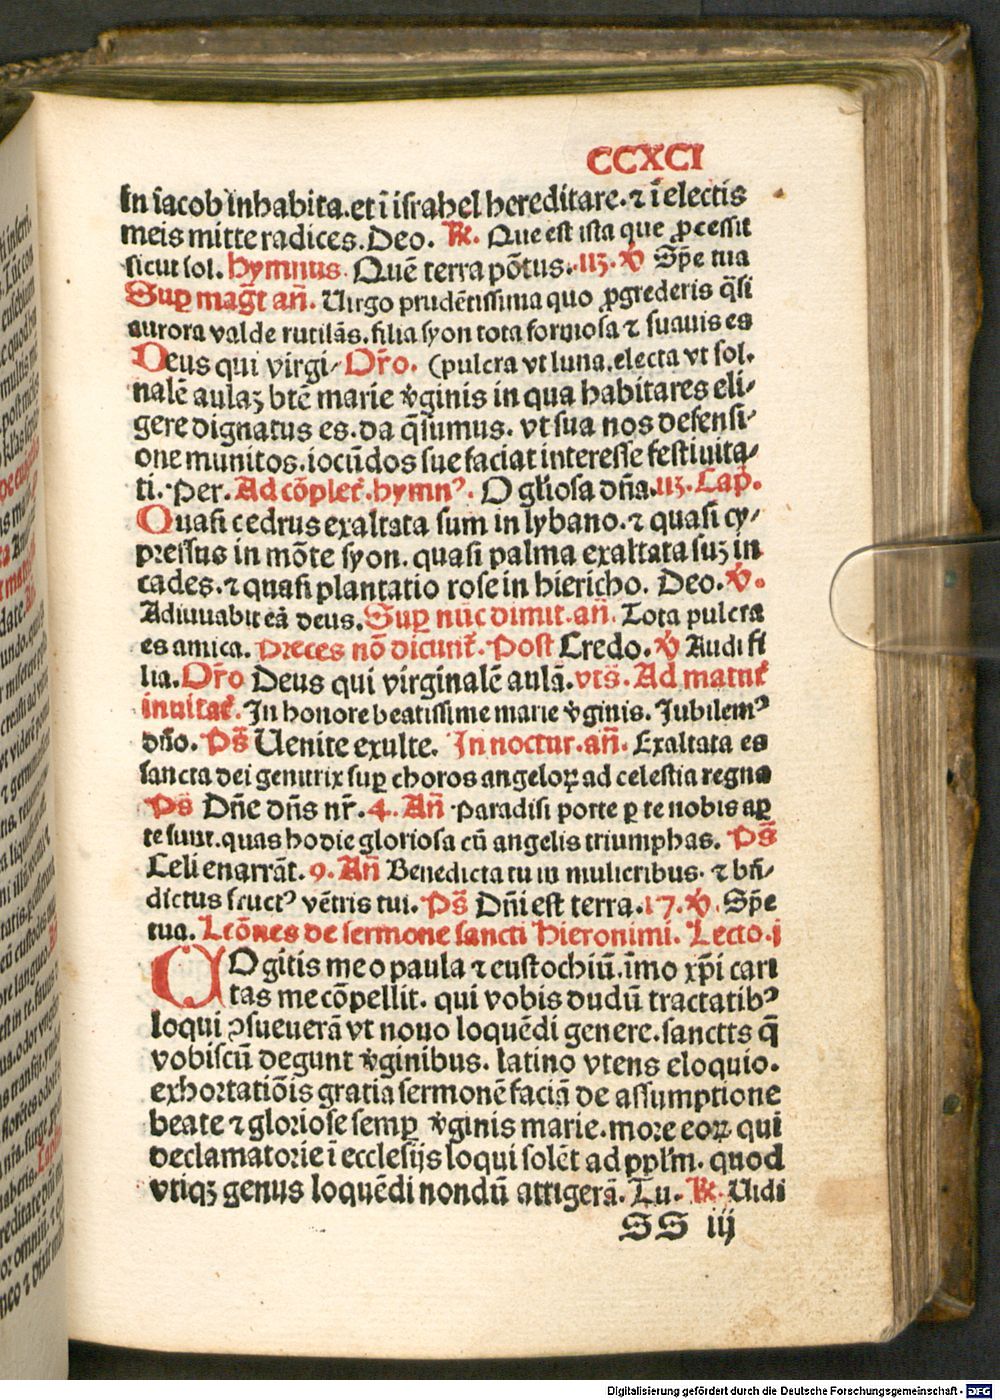 CCXCI
In iacob inhabita.et ī israhel hereditare.⁊ ī electis
meis mitte radices.Deo. ℟. Que est ista que ꝓcessit
sicut sol. hymnus. Quē terra pōtus.113.℣ Spē tua
Suꝑ magt̄ an̄. Uirgo prudētissima quo ꝓgrederis q̄si
aurora valde rutilās.filia syon tota formosa ⁊ suauis es
Deus qui virgi⸗ Or̄o. (pulcra vt luna.electa vt sol.
nalē aulaꝫ btē marie v̄ginis in qua habitares eli⸗
gere dignatus es.da q̄sumus. vt sua nos defensi⸗
one munitos.iocūdos sue faciat interesse festiuita⸗
ti. Per. Ad cōplet̄.hymnꝰ. O gl̄iosa dn̄a.113.Cap̄.
Quasi cedrus exaltata sum in lybano.⁊ quasi cy⸗
pressus in mōte syon.quasi palma exaltata suꝫ in
cades.⁊ quasi plantatio rose in hiericho. Deo.℣.
Adiuuabit eā deus.Suꝑ nūc dimit.an̄. Tota pulcra
es amica. Preces nō dicunt̄. Post Credo.℣ Audi fi
lia.Or̄o Deus qui virginalē aulā.vts̄. Ad matut̄
inuitat̄. In honore beatissime marie v̄ginis. Jubilemꝰ
dn̄o. Ps̄ Uenite exulte. In noctur.an̄. Exaltata es
sancta dei genitrix suꝑ choros angeloꝝ ad celestia regna
Ps̄ Dn̄e dn̄s nr̄.4. An̄ Paradisi porte ꝑ te nobis aꝑ
te sunt.quas hodie gloriosa cū angelis triumphas. Ps̄
Celi enarrāt.9. An̄ Benedicta tu in mulieribus. ⁊ bn̄⸗
dictus fructꝰ vētris tui. Ps̄ Dn̄i est terra.17.℣. Spē
tua. Lcōnes de sermone sancti Hieronimi. Lectio.j
COgitis me o paula ⁊ eustochiū.īmo xp̄i cari
tas me cōpellit. qui vobis dudū tractatibꝰ
loqui ꝯsueuerā vt nouo loquēdi genere.sanctts q̄
vobiscū degunt v̄ginibus. latino vtens eloquio.
exhortatiōis gratia sermonē faciā de assumptione
beate ⁊ gloriose semꝑ v̄ginis marie.more eoꝝ qui
declamatorie ī ecclesijs loqui solēt ad ppl̄'m. quod
vtiqꝫ genus loquēdi nondū attigerā. Tu. ℟. Uidi
SS iij
Digitalisierung gefördert durch die Deutsche Forschungsgemeinschaft - DFG